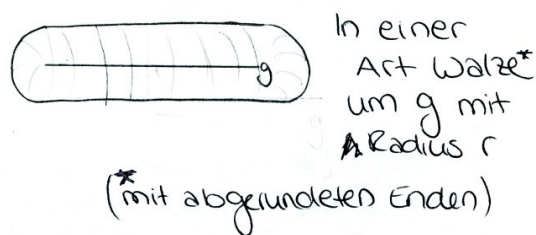 g
In einer
Art Walze*
um g mit
Radius r
(*mit abgerundeten Enden)